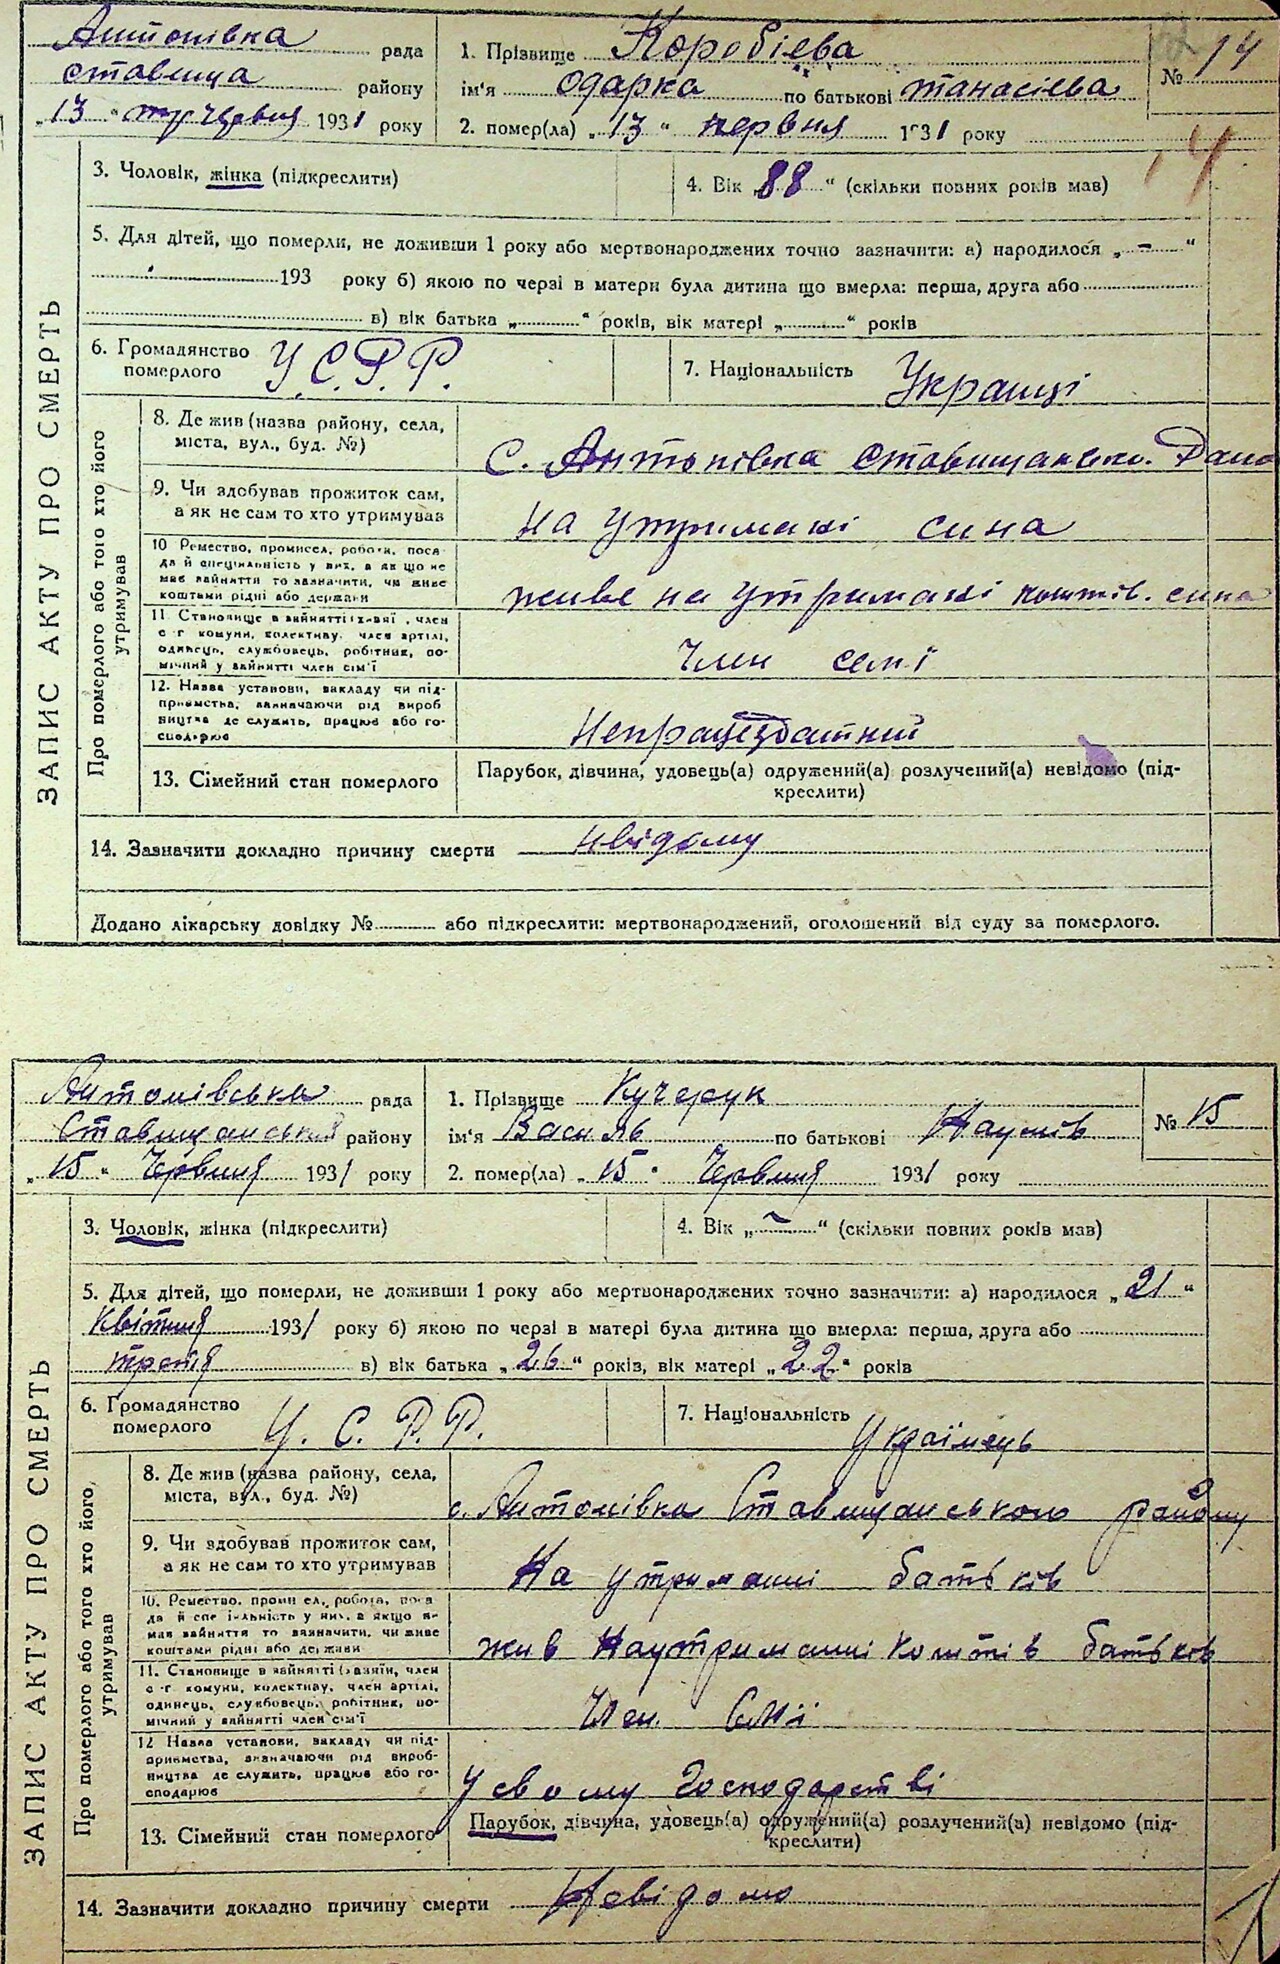 Антонівка рада
ставища району
„13" червня 1931 року
1. Прізвище Коробієва
ім'я Одарка по батькові танасієва
2. помер(ла) „13" червня 1931 року
№ 14
14
ЗАПИС АКТУ ПРО СМЕРТЬ
3. Чоловік, жінка (підкреслити)
4. Вік „88" (скільки повних років мав)
5. Для дітей, що померли, не доживши 1 року або мертвонароджених точно зазначити: а) народилося „ – "
193 року б) якою по черзі в матери була дитина що вмерла: перша, друга або
в) вік батька „ " років, вік матері „ " років
6. Громадянство
померлого
У.С.Р.Р.
7. Національність Украінці
Про померлого або того хто його
утримував
8. Де жив (назва району, села,
міста, вул., буд. №)
с. Антонівка
9. Чи здобував прожиток сам,
а як не сам то хто утримував
на утримані сина
10 Ремество, промисел, робота, поса-
да й спеціяльність у них, а як що не
має зайняття то зазначити, чи живе
коштами рідні або держави
живе на утримані коштів. сина
11. Становище в зайнятті член
с-г комуни, колективу, член артілі,
одинець, службовець, робітник, по-
мічний у зайнятті член сім'ї
Член семі
12. Назва установи, закладу чи під-
приємства, зазначаючи рід вироб
ництва де служить, працює або го-
сподарює
Непрацездатний
13. Сімейний стан померлого
Парубок, дівчина, удовець(а) одружений(а) розлучений(а) невідомо (під-
креслити)
14. Зазначити докладно причину смерти нвідому
Додано лікарську довідку № або підкреслити: мертвонароджений, оголошений від суду за померлого.
Антонівська рада
Ставищанський району
„15" Червня 1931 року
1. Прізвище Кучерук
ім'я Василь по батькові Наумів
2. помер(ла) „15" Червня 1931 року
№ 15
ЗАПИС АКТУ ПРО СМЕРТЬ
3. Чоловік, жінка (підкреслити)
4. Вік „ ~ " (скільки повних років мав)
5. Для дітей, що померли, не доживши 1 року або мертвонароджених точно зазначити: а) народилося „21"
Квітня 1931 року б) якою по черзі в матері була дитина що вмерла: перша, друга або
третя в) вік батька „26" років, вік матері „22" років
6. Громадянство
померлого
У. С. Р. Р.
7. Національність Українець
Про померлого або того хто його,
утримував
8. Де жив (назва району, села,
міста, вул., буд. №)
с. Антонівка Ставищанського району
9. Чи здобував прожиток сам,
а як не сам то хто утримував
На утриманні батьків
10. Ремество, роботa, поса
да й у них, а якщо не-
має зайняття то зазначити, чи живе
коштами рідні або держави
жив Наутриманні коштів батьків
11. Становище в зайнятті (хазяїн, член
с-г комуни, колективу, член артілі,
одинець, службовець, робітник, по-
мічний у зайнятті член сім'ї
Член. Смії
12 Назва установи, закладу чи під-
приємства, зазначаючи рід вироб-
ництва де служить, працює або го-
сподарює
У свому Господарстві
13. Сімейний стан померлого
Парубок, дівчина, удовець(а) одружений(а) розлучений(а) невідомо (під-
креслити)
14. Зазначити докладно причину смерти Невідомо